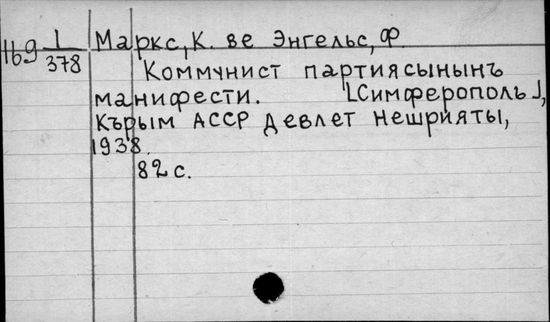 Маркс, К. ве Энгельс, Ф.
Нб9 1/378
Коммунист партиясынынъ
манифести. [Симферополь],
Къръым АССР девлет нешрияты,
1938.
82 с.